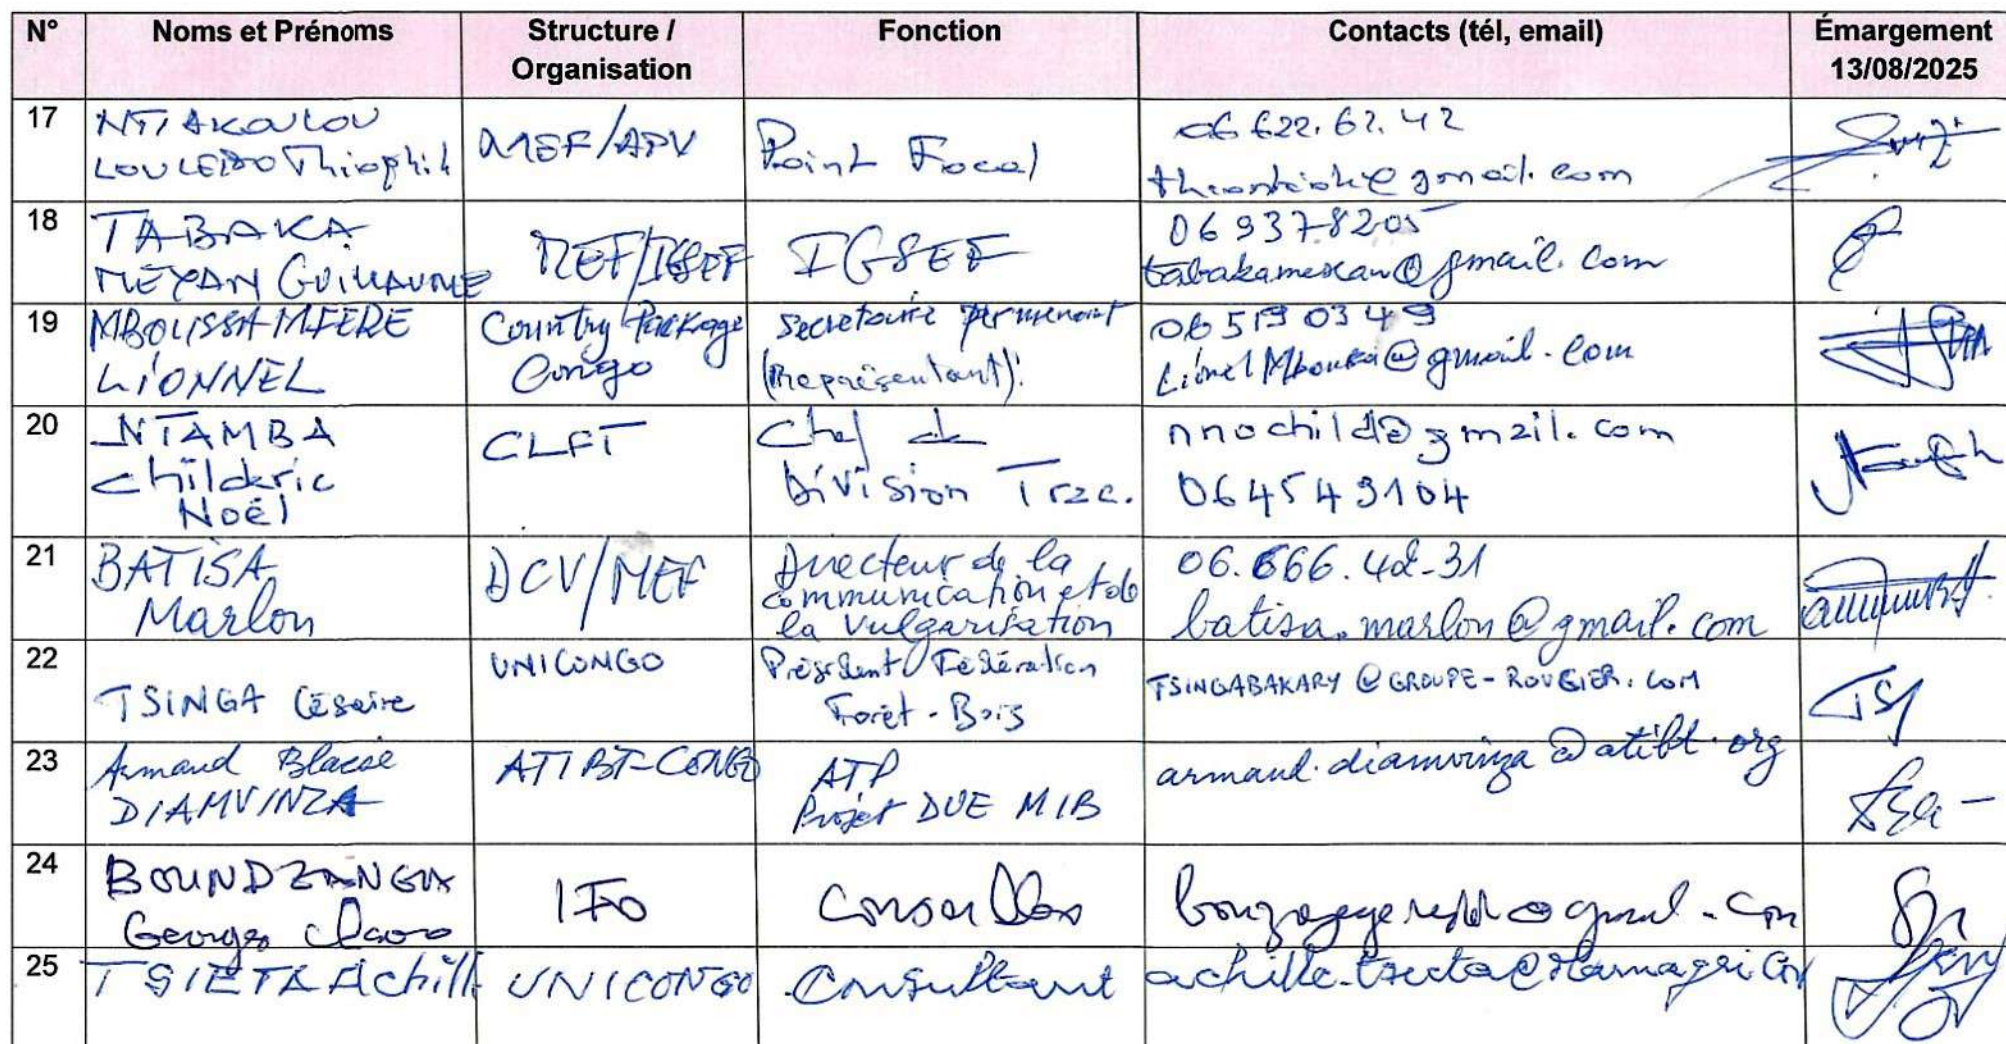 N° Noms et Prénoms Structure / Organisation Fonction Contacts (tél, email) Émargement 13/08/2025
17
NTIAKOULOU
LOULEIDO Thiophil
MEF/APV
Point Focal
06 622.62.42
gmail.com
18
TABAKA
MEXAN GUILLAUME
MEF/IGSEF
IGSEF
06 937 8205
tabakamexan@gmail.com
19
MBOUSSA MFERE
LIONNEL
Country Package
Congo
Secretaire permenant
(Représentant)
06 519 03 49
@gmail.com
20
NTAMBA
Childeric
Noël
CLFT
Chef de
Division Trac.
nnochild@gmail.com
064549104
21
BATISA
Marlon
DCV/MEF
Directeur de la
communication et de
la vulgarisation
06.666.42-31
batisa.marlon@gmail.com
22
TSINGA Césaire
UNICONGO
Président Fédération
Forêt - Bois
TSINGABAKARY@GROUPE-ROUGIER.COM
23
Armand Blaise
DIAMVINZA
ATIBT-CONGO
ATP
Projet DUE MIB
armand.diamvinza@atibt.org
24
BOUNDZANGA
Georges Claver
IFO
Conseiller
25
TSIETA Achill
UNICONGO
Consultant